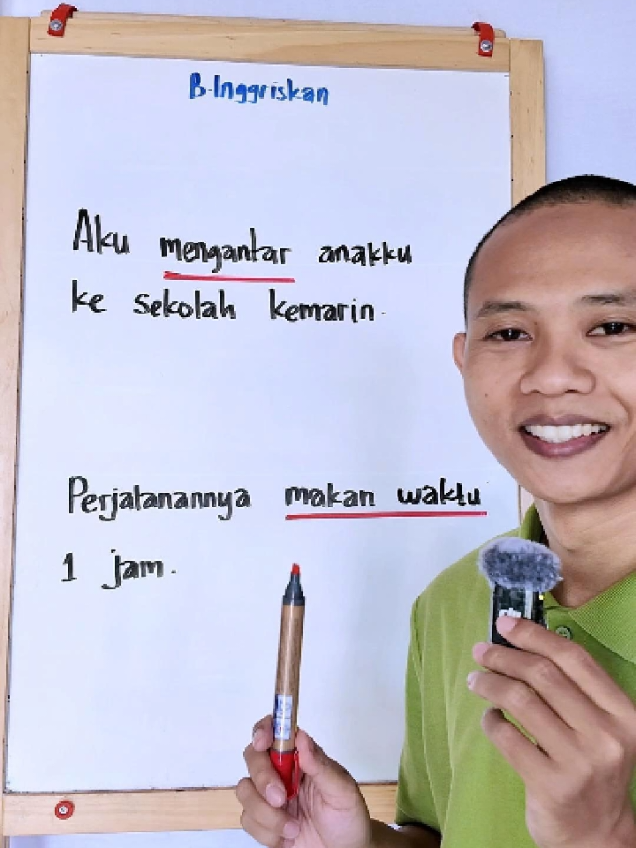 B.Inggriskan
Aku mengantar anakku
ke sekolah kemarin.
Perjalanannya makan waktu
1 jam.